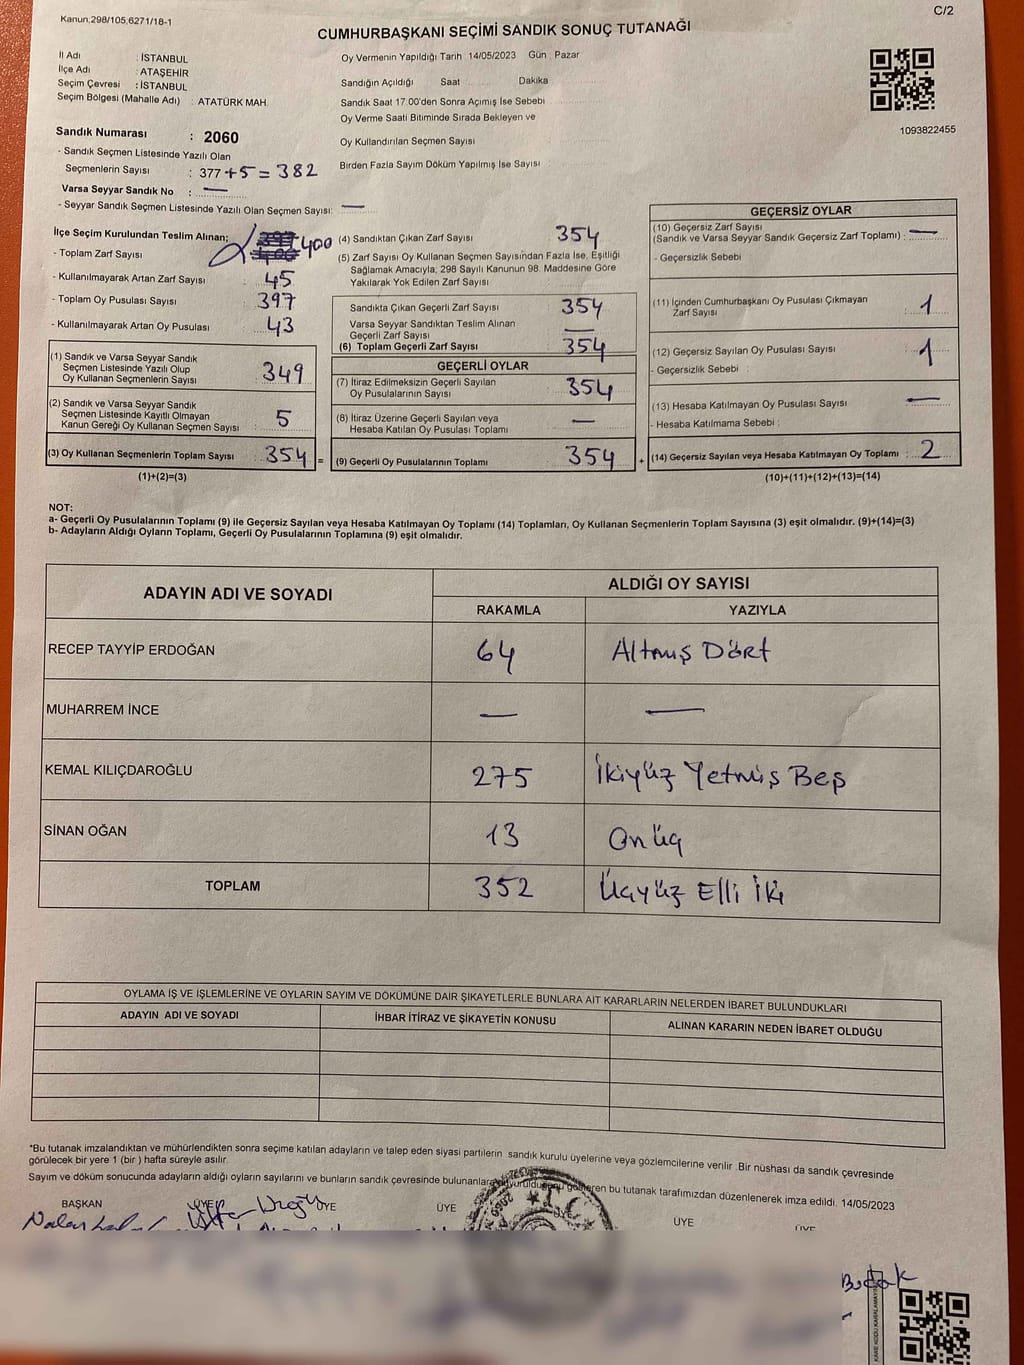 Kanun,298/105,6271/18-1
C/2
CUMHURBAŞKANI SEÇİMİ SANDIK SONUÇ TUTANAĞI
İl Adı : İSTANBUL
İlçe Adı : ATAŞEHİR
Seçim Çevresi : İSTANBUL
Seçim Bölgesi (Mahalle Adı) : ATATÜRK MAH.
Oy Vermenin Yapıldığı Tarih 14/05/2023 Gün Pazar
Sandığın Açıldığı Saat Dakika
Sandık Saat 17.00'den Sonra Açımış İse Sebebi
Oy Verme Saati Bitiminde Sırada Bekleyen ve
Oy Kullandırılan Seçmen Sayısı
Birden Fazla Sayım Döküm Yapılmış İse Sayısı :
1093822455
Sandık Numarası : 2060
- Sandık Seçmen Listesinde Yazılı Olan
Seçmenlerin Sayısı : 377 +5 = 382
Varsa Seyyar Sandık No : —
- Seyyar Sandık Seçmen Listesinde Yazılı Olan Seçmen Sayısı: —
İlçe Seçim Kurulundan Teslim Alınan;
- Toplam Zarf Sayısı 400
- Kullanılmayarak Artan Zarf Sayısı 45
- Toplam Oy Pusulası Sayısı 397
- Kullanılmayarak Artan Oy Pusulası 43
(1) Sandık ve Varsa Seyyar Sandık
Seçmen Listesinde Yazılı Olup
Oy Kullanan Seçmenlerin Sayısı 349
(2) Sandık ve Varsa Seyyar Sandık
Seçmen Listesinde Kayıtlı Olmayan
Kanun Gereği Oy Kullanan Seçmen Sayısı : 5
(3) Oy Kullanan Seçmenlerin Toplam Sayısı : 354 =
(1)+(2)=(3)
(4) Sandıktan Çıkan Zarf Sayısı 354
(5) Zarf Sayısı Oy Kullanan Seçmen Sayısından Fazla İse, Eşitliği
Sağlamak Amacıyla, 298 Sayılı Kanunun 98. Maddesine Göre
Yakılarak Yok Edilen Zarf Sayısı
Sandıkta Çıkan Geçerli Zarf Sayısı 354
Varsa Seyyar Sandıktan Teslim Alınan
Geçerli Zarf Sayısı —
(6) Toplam Geçerli Zarf Sayısı 354
GEÇERLİ OYLAR
(7) İtiraz Edilmeksizin Geçerli Sayılan
Oy Pusulalarının Sayısı 354
(8) İtiraz Üzerine Geçerli Sayılan veya
Hesaba Katılan Oy Pusulası Toplamı —
(9) Geçerli Oy Pusulalarının Toplamı 354 +
GEÇERSİZ OYLAR
(10) Geçersiz Zarf Sayısı
(Sandık ve Varsa Seyyar Sandık Geçersiz Zarf Toplamı) : —
- Geçersizlik Sebebi
(11) İçinden Cumhurbaşkanı Oy Pusulası Çıkmayan
Zarf Sayısı 1
(12) Geçersiz Sayılan Oy Pusulası Sayısı 1
- Geçersizlik Sebebi :
(13) Hesaba Katılmayan Oy Pusulası Sayısı —
- Hesaba Katılmama Sebebi :
(14) Geçersiz Sayılan veya Hesaba Katılmayan Oy Toplamı : 2
(10)+(11)+(12)+(13)=(14)
NOT:
a- Geçerli Oy Pusulalarının Toplamı (9) ile Geçersiz Sayılan veya Hesaba Katılmayan Oy Toplamı (14) Toplamları, Oy Kullanan Seçmenlerin Toplam Sayısına (3) eşit olmalıdır. (9)+(14)=(3)
b- Adayların Aldığı Oyların Toplamı, Geçerli Oy Pusulalarının Toplamına (9) eşit olmalıdır.
ADAYIN ADI VE SOYADI ALDIĞI OY SAYISI
RAKAMLA YAZIYLA
RECEP TAYYİP ERDOĞAN 64 Altmış Dört
MUHARREM İNCE — —
KEMAL KILIÇDAROĞLU 275 İkiyüz Yetmiş Beş
SİNAN OĞAN 13 Onüç
TOPLAM 352 Üçyüz Elli İki
OYLAMA İŞ VE İŞLEMLERİNE VE OYLARIN SAYIM VE DÖKÜMÜNE DAİR ŞİKAYETLERLE BUNLARA AİT KARARLARIN NELERDEN İBARET BULUNDUKLARI
ADAYIN ADI VE SOYADI İHBAR İTİRAZ VE ŞİKAYETİN KONUSU ALINAN KARARIN NEDEN İBARET OLDUĞU
*Bu tutanak imzalandıktan ve mühürlendikten sonra seçime katılan adayların ve talep eden siyasi partilerin sandık kurulu üyelerine veya gözlemcilerine verilir. Bir nüshası da sandık çevresinde
görülecek bir yere 1 (bir) hafta süreyle asılır.
Sayım ve döküm sonucunda adayların aldığı oyların sayılarını ve bunların sandık çevresinde bulunanlara duyurulduğunu gösteren bu tutanak tarafımızdan düzenlenerek imza edildi. 14/05/2023
BAŞKAN ÜYE ÜYE ÜYE ÜYE ÜYE